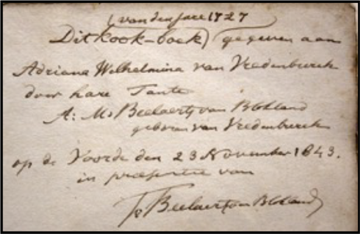 (van des jare 1727
Dit kook-boek) gegeven aan
Adriana Wilhelmina van Vredenburch
door hare Tante
A: M: Beelaerts van Blokland
geboren van Vredenburch
op de Voorde den 23 November 1843.
in presentie van
Beelaerts van Blokland